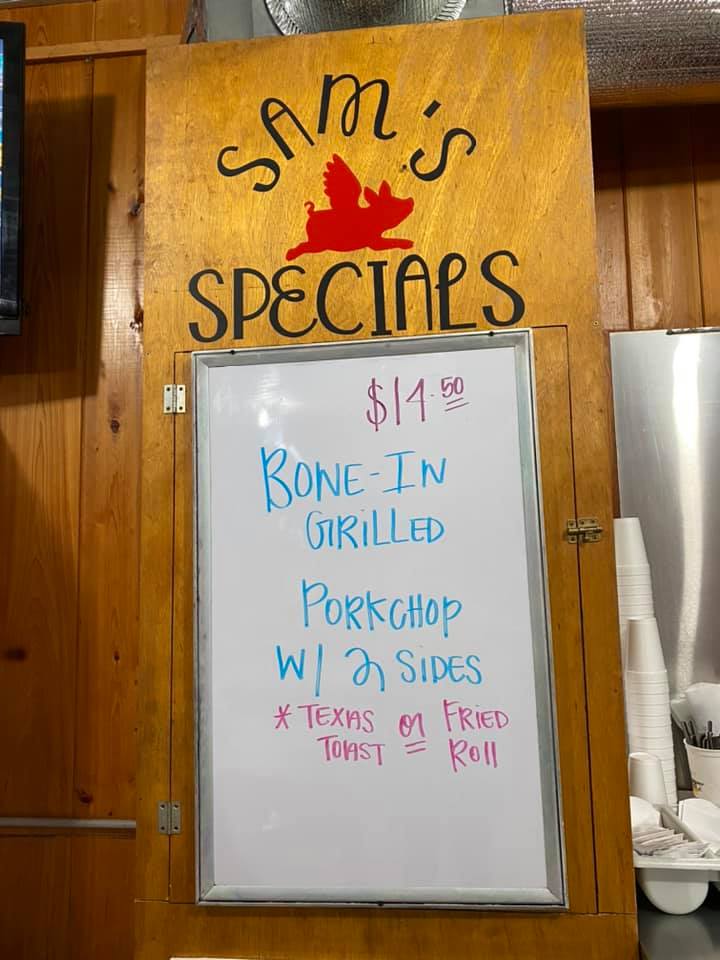 SAM'S
SPECIALS
$14.50
BONE-IN
GRILLED
PORKCHOP
W/ 2 SIDES
* TEXAS TOAST or FRIED ROll